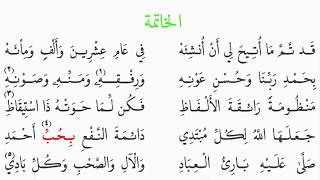 الخاتمة
قَد تَمَّ مَا أُتِيحَ لِي أَنْ أُنْشِئَهْ فِي عَامِ عِشْرِينَ وَأَلْفٍ وَمِائَهْ
بِحَمْدِ رَبِّنَا وَحُسْنِ عَوْنِهِ وَرِفْقِهِ(١) وَمَنِّهِ وَصَوْنِهِ(٢)
مَنْظُومَةً رَائِقَةَ الْأَلْفَاظِ فَكُن لِّمَا حَوَتْهُ ذَا اسْتِيقَاظِ(٣)
جَعَلَهَا اللهُ لِكُلِّ مُبْتَدِي دَائِمَةَ النَّفْعِ بِحُبِّ(٤) أَحْمَدِ
صَلَّى عَلَيْهِ بَارِئُ الْعِبَادِ وَالْآلِ وَالصَّحْبِ وَكُلِّ بَادِي(٥)